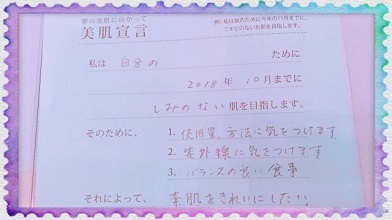 夢の美肌に向かって
例）私は彼のために今年の11月までに、
美肌宣言
ニキビのないお肌を目指します。
私は 自分の ために
2018年 10月までに
しみのない 肌を目指します。
そのために、 1. 使用量、方法に気をつけます
2. 紫外線に気をつけます
3. バランスの良い食事
それによって、 素肌をきれいにしたい